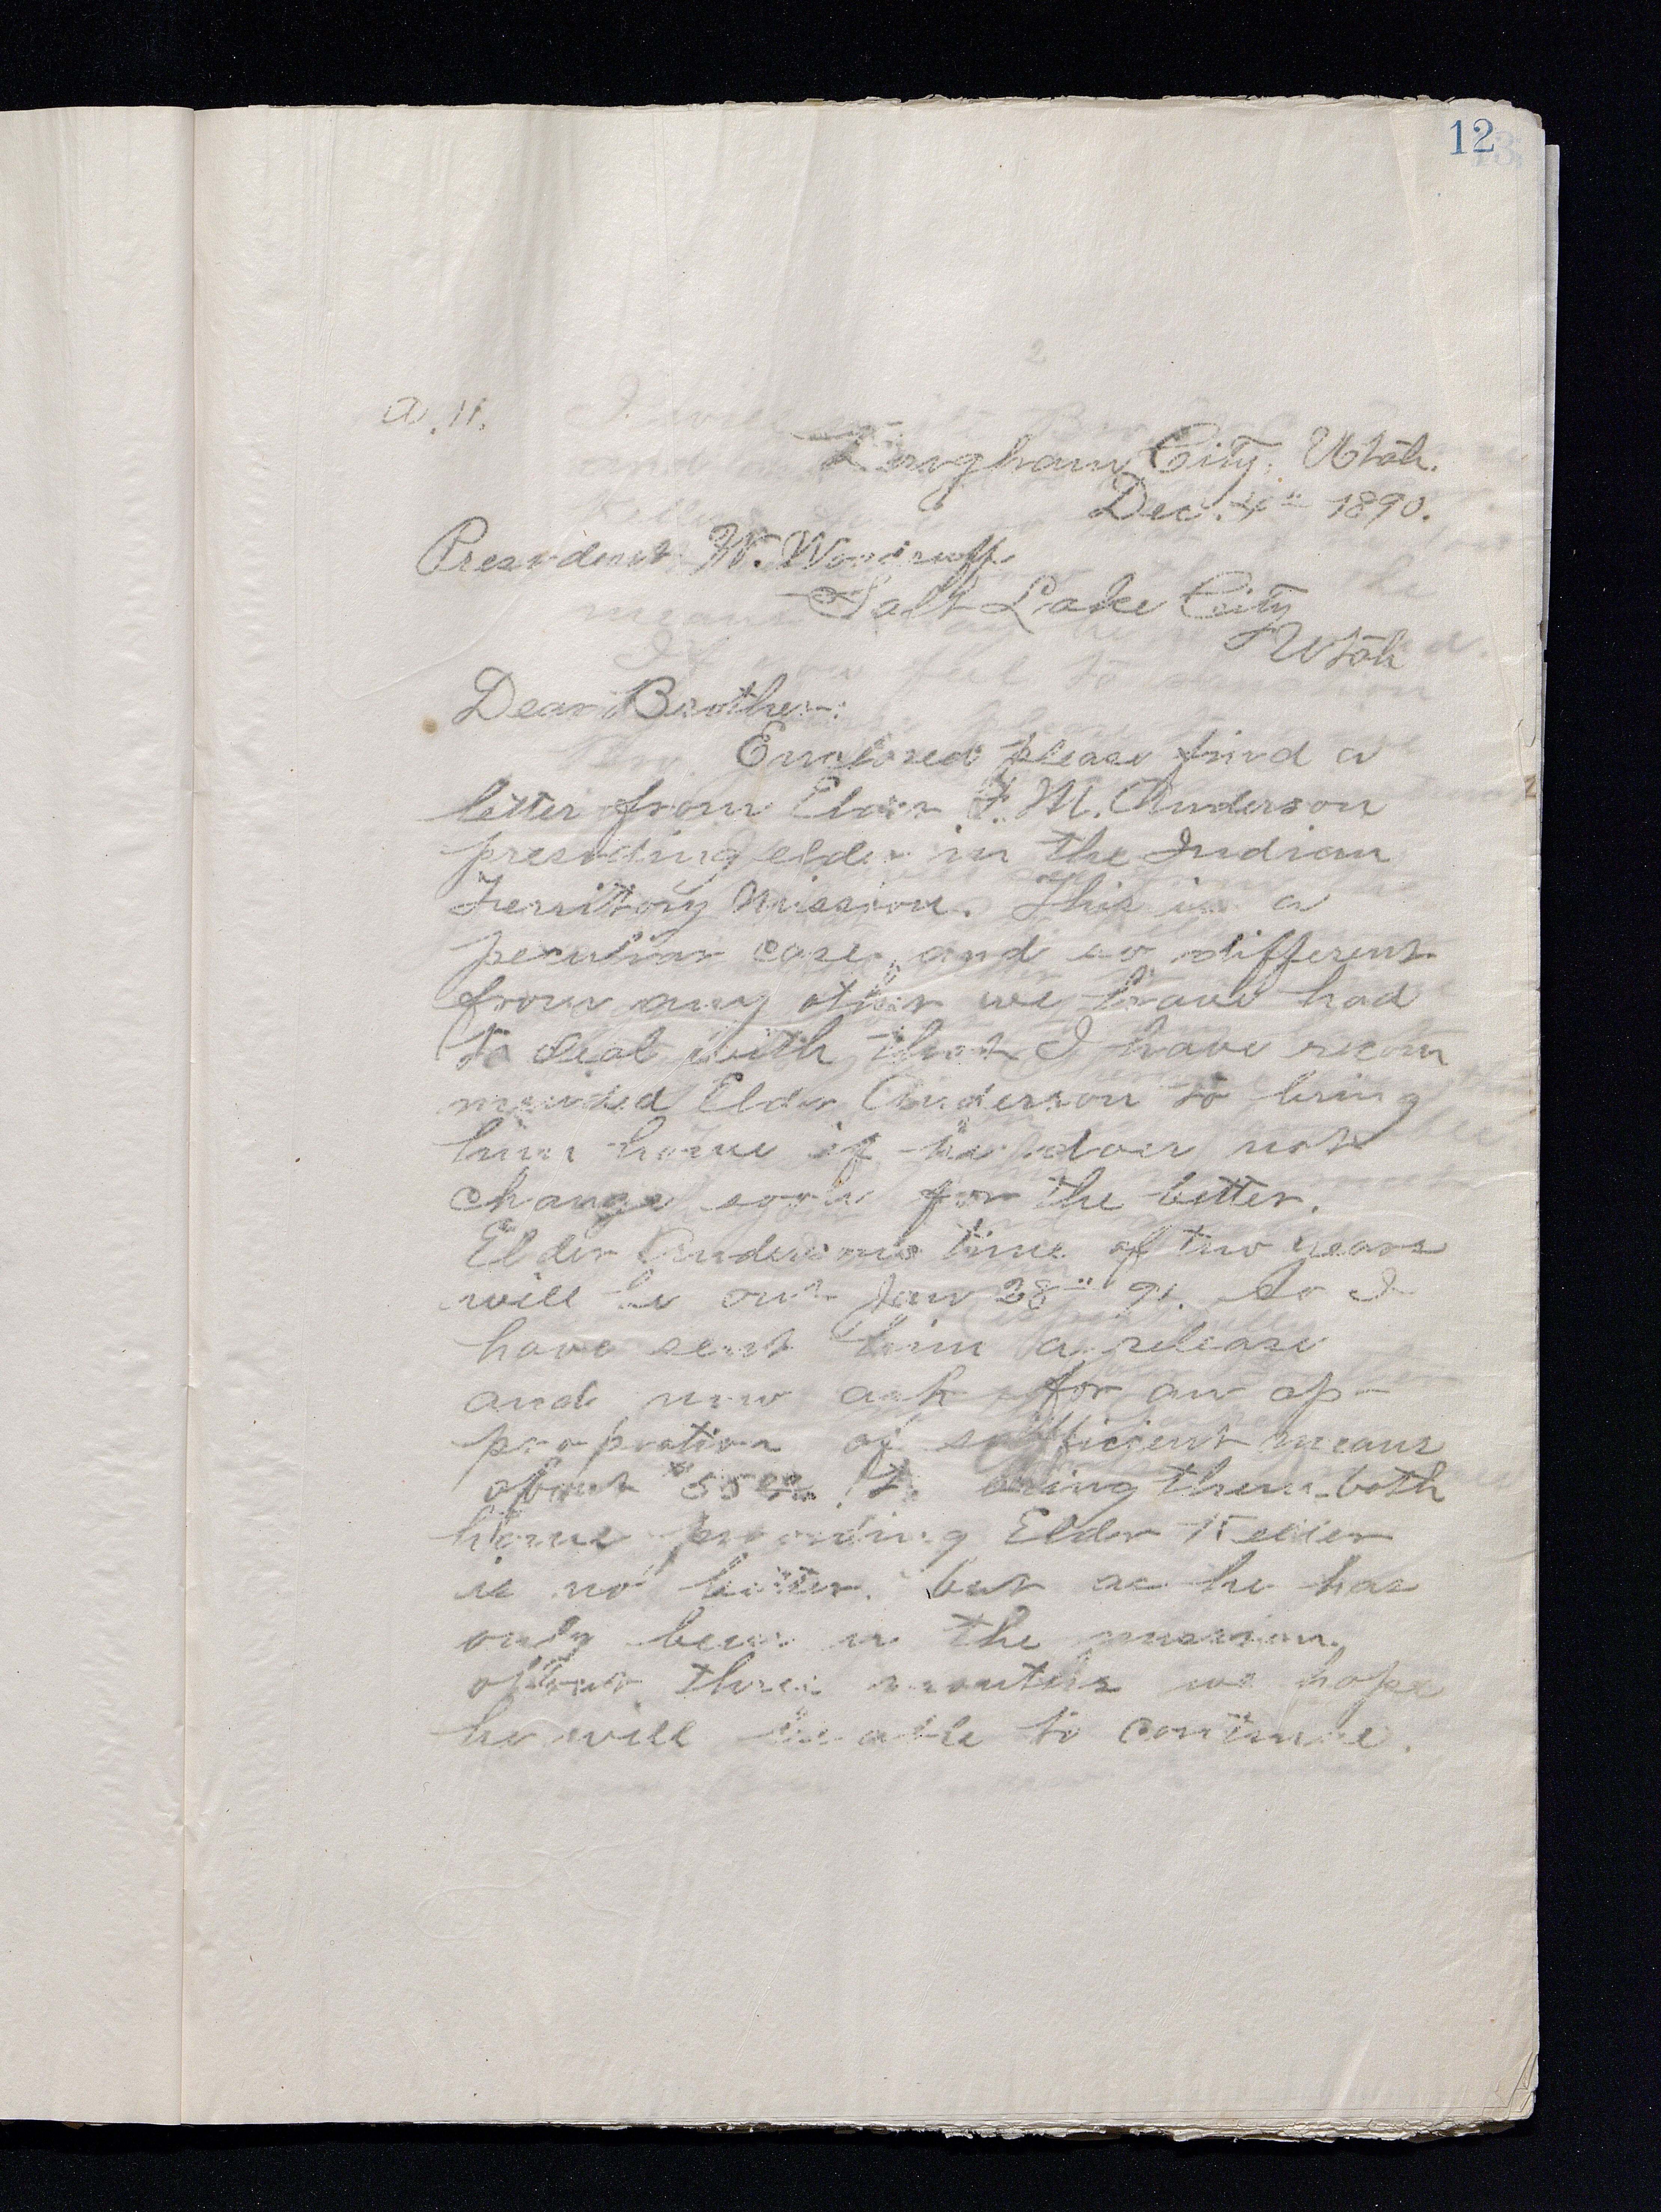 12
a. 11.
Brigham City, Utah.
Dec. 4" 1890.
President W. Woodruff
Salt Lake City
Utah
Dear Brother:
Enclosed please find a
letter from Elder F. M. Anderson
presiding elder in the Indian
Territory Mission. This is a
peculiar case, and so different
from any other we have had
to deal with that I have recom
mended Elder Anderson to bring
him home if he does not
change soon for the better.
Elder Andersons time of two years
will be out Jan 28" 91. So I
have sent him a release
and now ask for an ap-
propriation of sufficient means
about $55 to bring them both
home providing Elder
is no better. but as he has
only been in the mission
about three months we hope
he will be able to continue.